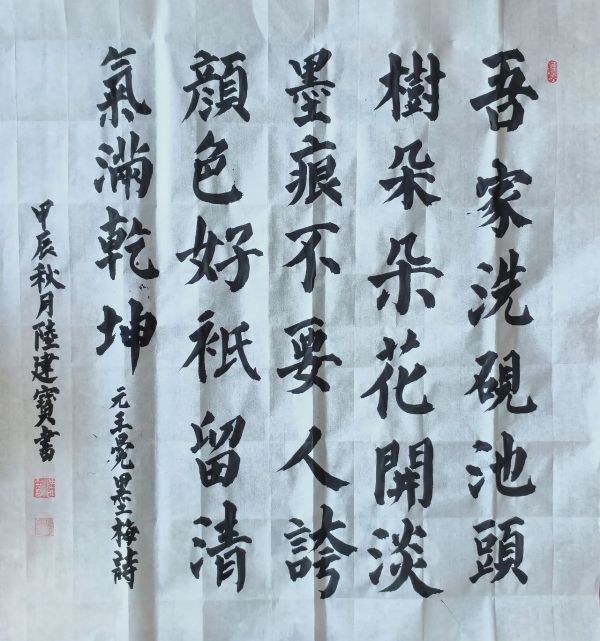 吾家洗硯池頭
樹朵朵花開淡
墨痕不要人誇
顔色好祇留清
氣滿乾坤
元王冕墨梅詩
甲辰秋月陸建寶書